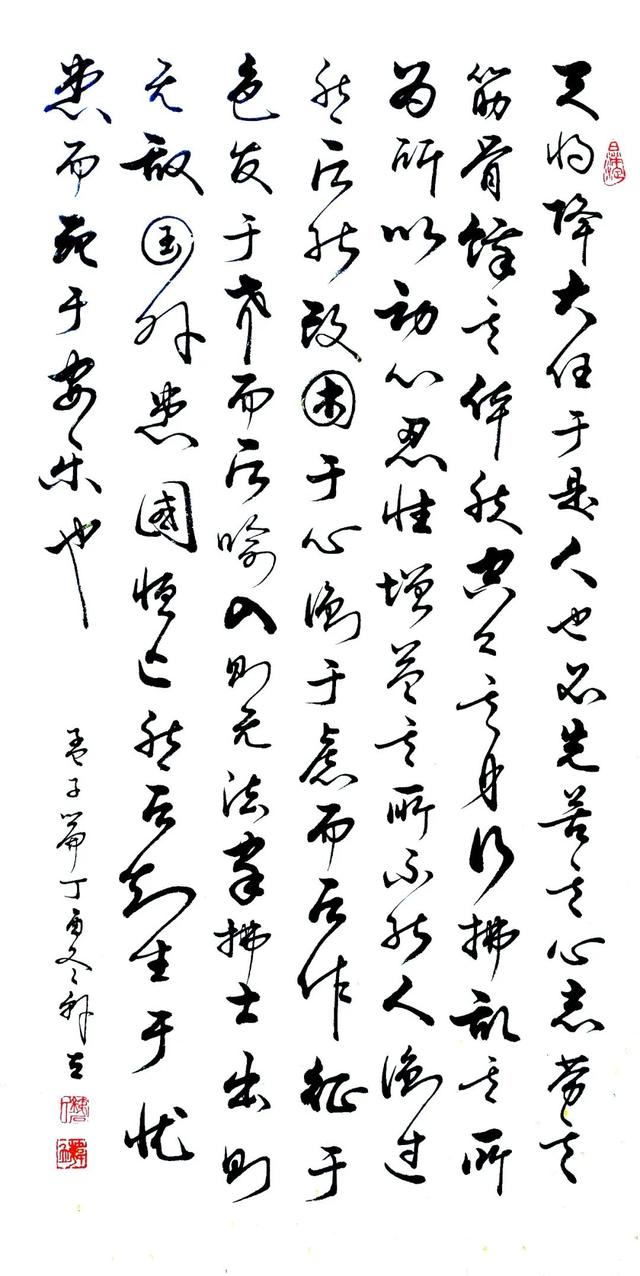 天将降大任于是人也必先苦其心志劳其
筋骨饿其体肤空乏其身行拂乱其所
为所以动心忍性增益其所不能人衡过
然后能改困于心衡于虑而后作征于
色发于声而后喻入则无法家拂士出则
无敌国外患國恒亡然后知生于忧
患而死于安乐也
孟子篇丁酉冬